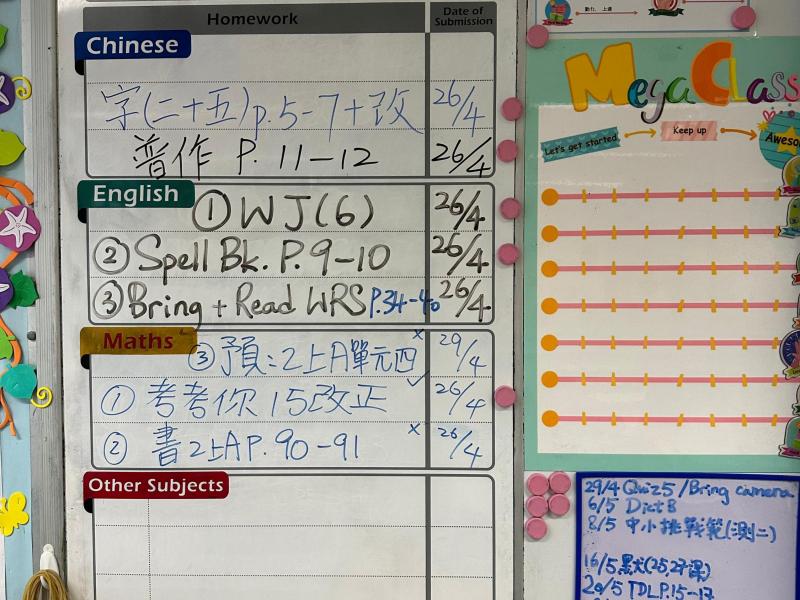 Homework Date of Submission
Chinese
字(二十五)p.5-7+改 26/4
普作 P.11-12 26/4
English
①WJ(6) 26/4
②Spell Bk. P.9-10 26/4
③Bring + Read WRS P.34-40 26/4
Maths
③預:2上A單元四 x 29/4
①考考你15改正 ✓ 26/4
②書2上A P.90-91 x 26/4
Other Subjects
勤力, 上進
Mega Class
Let's get started
Keep up
Aweso
29/4 Quiz5/Bring camera
6/5 Dict 8
8/5 中小挑戰範(測二)
16/5 默(25,27課)
20/5 TDL P.15-17